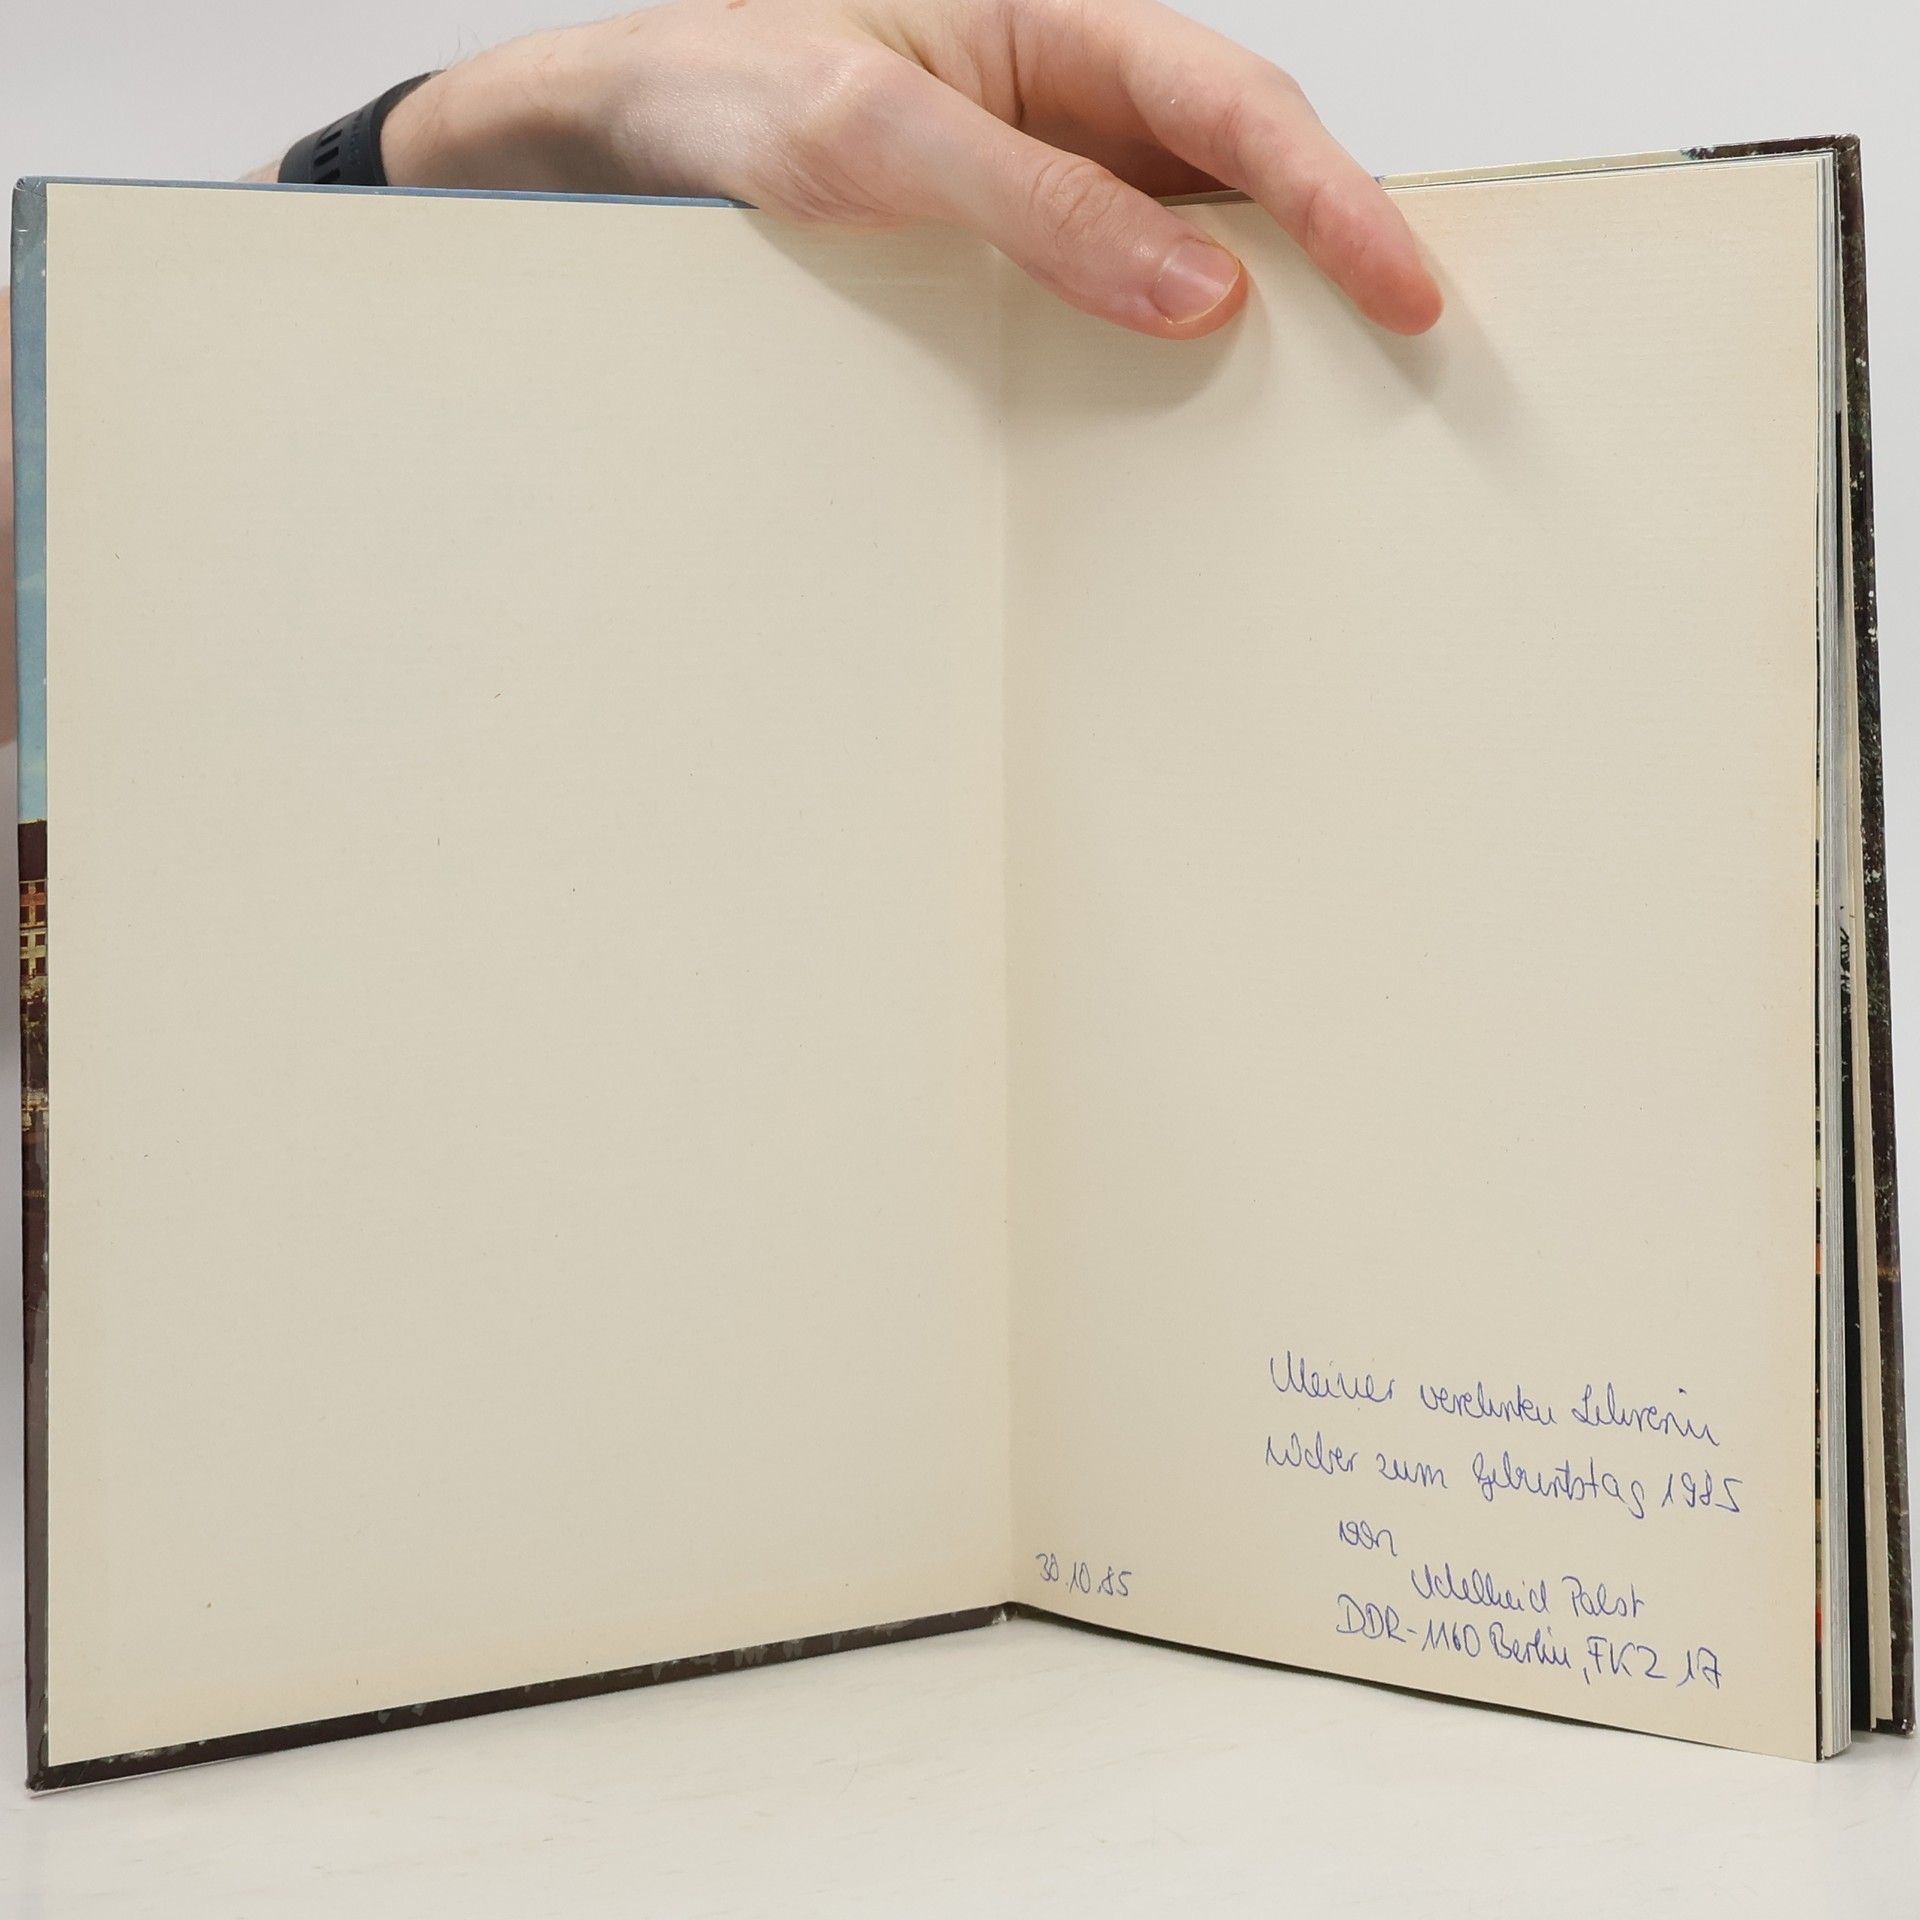 Meiner verehrten Lehrerin
Weber zum Geburtstag 1985
von
Adelheid Pabst
30.10.85
DDR-1160 Berlin, FKZ 17